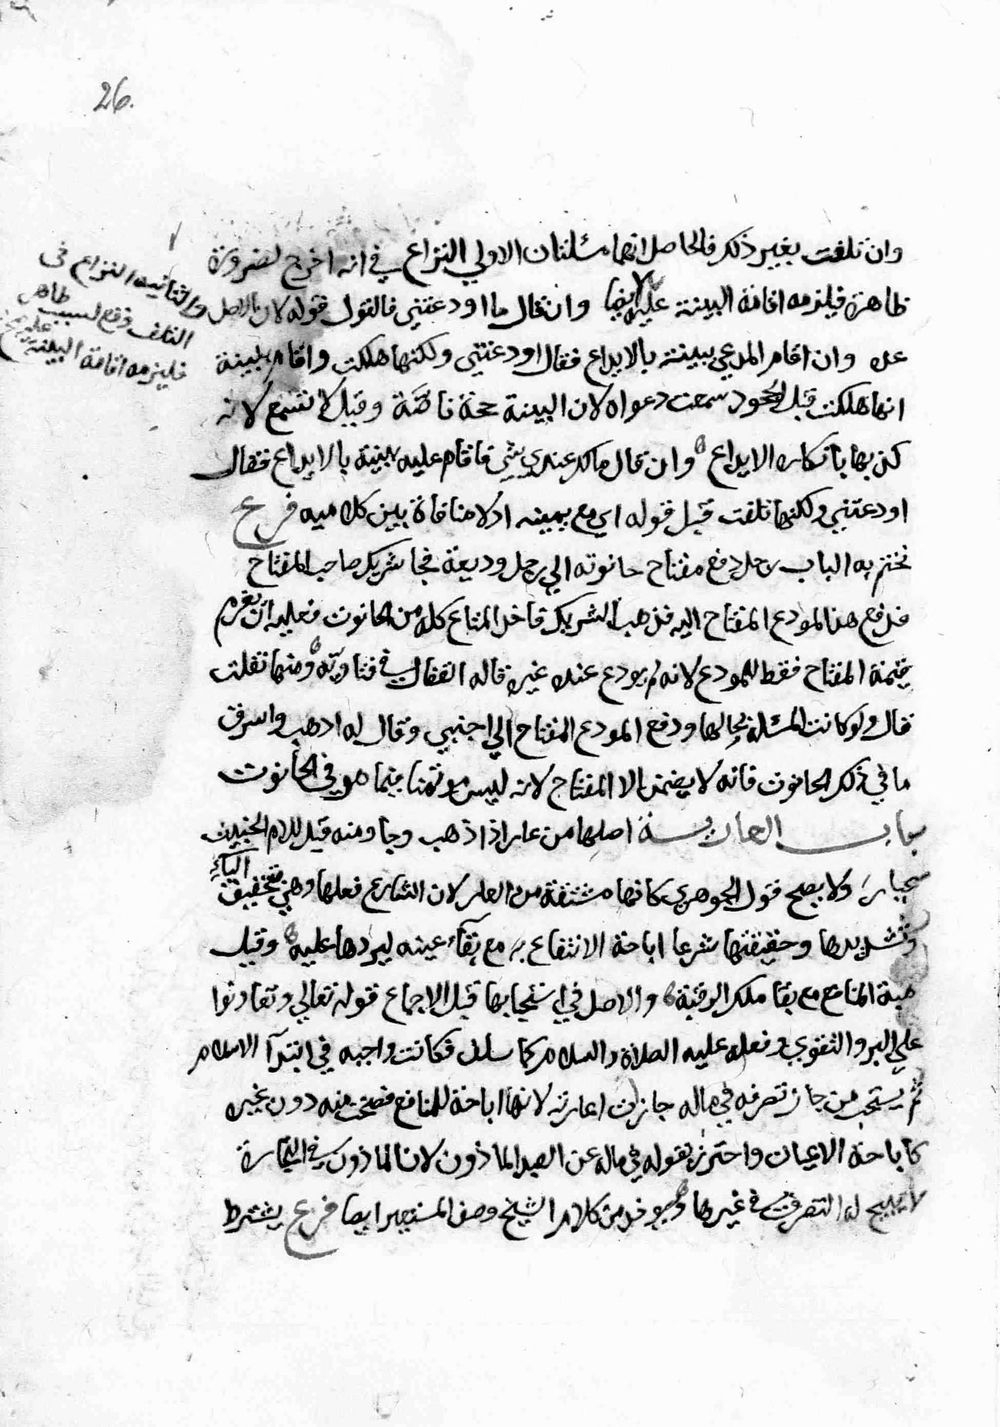 26.
وان تلفت بغير ذلك فالحاصل انهما مسئلتان الاولي النزاع في انه اخرج لضرورة
والثانية النزاع في
التلف وقع لسبب ظاهر
فليزمه اقامة البينة عليه
ظاهرة فيلزمه اقامة البينة عليه ايضا وان قال ما اودعتني فالقول قوله لان الاصل
عدمه وان اقام المدعي بينة بالايداع فقال اودعتني ولكنها هلكت واقام بينة
انها هلكت قبل الجحود سمعت دعواه لان البينة حجة قائمة وقيل لا تسمع لانه
كذبها بانكاره الايداع وان قال مالك عندي شي فاقام عليه بينة بالايداع فقال
اودعتني ولكنها تلفت قبل قوله اي مع يمينه اذ لا منافاة بين كلاميه فرع
نختم به الباب رجل دفع مفتاح حانوته الي رجل وديعة فجا شريك صاحب المفتاح
فدفع هذا المودع المفتاح اليه فذهب الشريك فاخذ المتاع كله من الحانوت فعليه ان يغرم
قيمة المفتاح فقط للمودع لانه لم يودع عنده غيره قاله القفال في فتاويه ومنها نقلت
قال ولو كانت المسئلة بحالها ودفع المودع المفتاح الي اجنبي وقال له اذهب واسرق
ما في ذلك الحانوت فانه لا يضمن الا المفتاح لانه ليس موتمنا فيما هو في الحانوت
باب العارية اصلها من عار اذا ذهب وجا ومنه قيل للغلام الخفيف
عيار ولا يصح قول الجوهري كانها مشتقة من العار لان الشارع فعلها وهي بتخفيف الياء
وتشديدها وحقيقتها شرعا اباحة الانتفاع به مع بقاء عينه ليردها عليه وقيل
هبة المنافع مع بقا ملك الرقبة والاصل في استحبابها قبل الاجماع قوله تعالي وتعاونوا
علي البر والتقوي وفعله عليه الصلاة والسلام كما سلف فكانت واجبه في ابتدآ الاسلام
ثم يستحب من جاز تصرفه في ماله جازت اعارته لانها اباحة للمنافع فصحت منه دون غيره
كاباحة الاعيان واحترز بقوله في ماله عن العبد الماذون لان الماذون في التجارة
لا يبيح له التصرف في غيرها ويوخذ من كلام الشيخ وصف المستعير ايضا فرع يشترط